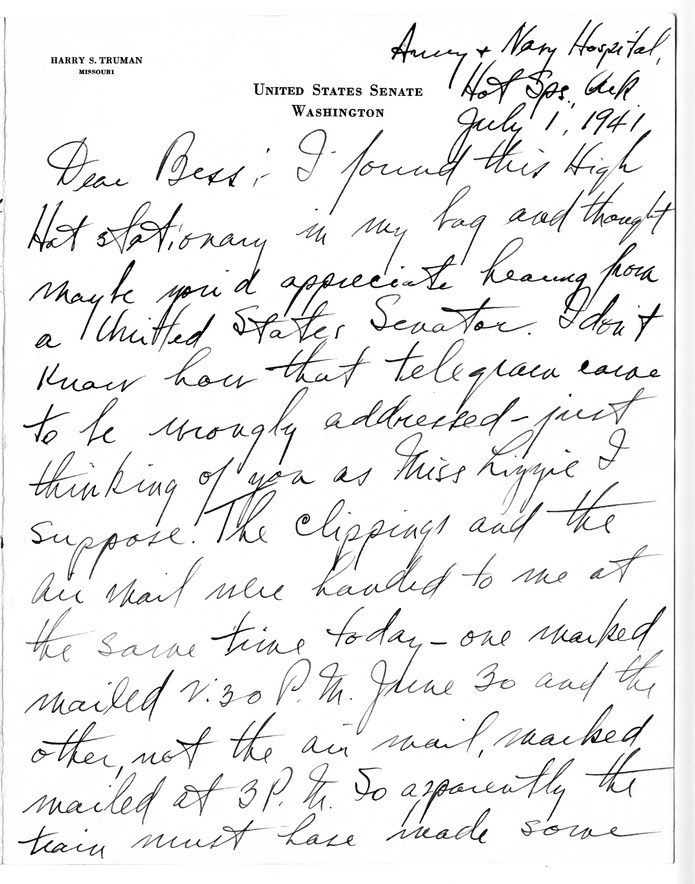 HARRY S. TRUMAN
MISSOURI
UNITED STATES SENATE
WASHINGTON
Army & Navy Hospital,
Hot Sps., Ark
July 1, 1941
Dear Bess;- I found this High
Hat stationary in my bag and thought
maybe you'd appreciate hearing from
a United States Senator. I don't
know how that telegram came
to be wrongly addressed - just
thinking of you as Miss Lizzie I
suppose. The clippings and the
air mail were handed to me at
the same time today - one marked
mailed 2:30 P.M. June 30 and the
other, not the air mail, marked
mailed at 3 P.M. So apparently the
train must have made some